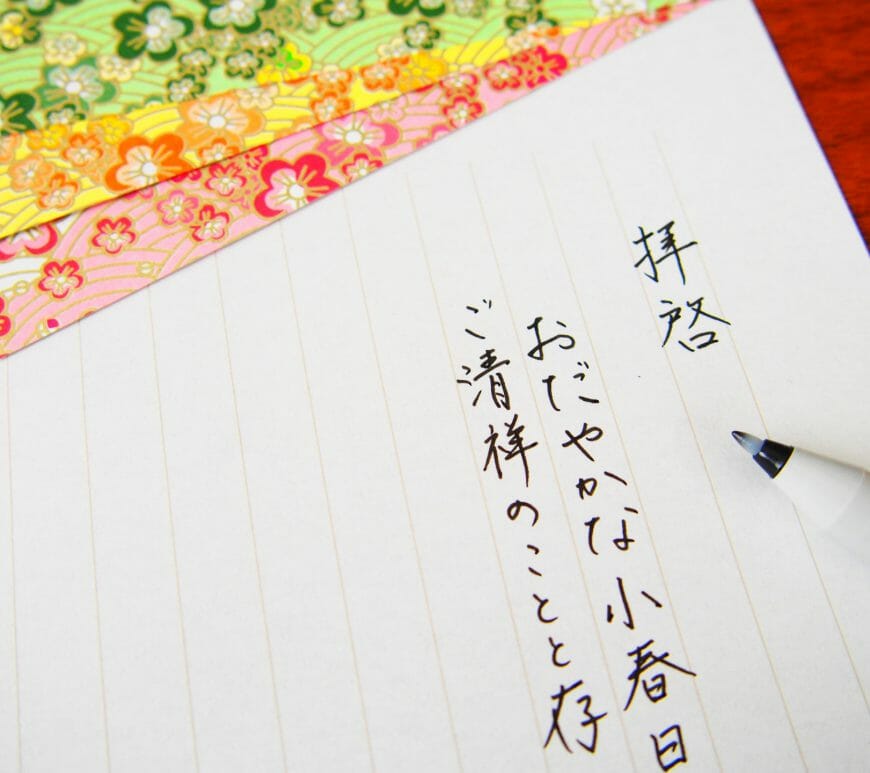 拝啓
おだやかな小春日
ご清祥のことと存